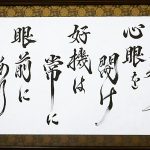 心眼を
開け
好機は
常に
眼前に
あり